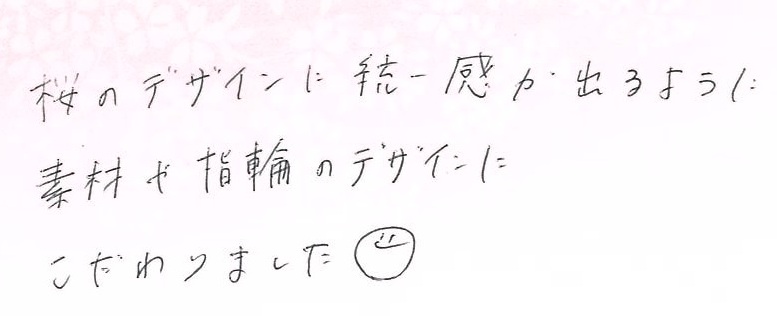 桜のデザインに統一感が出るように
素材や指輪のデザインに
こだわりました